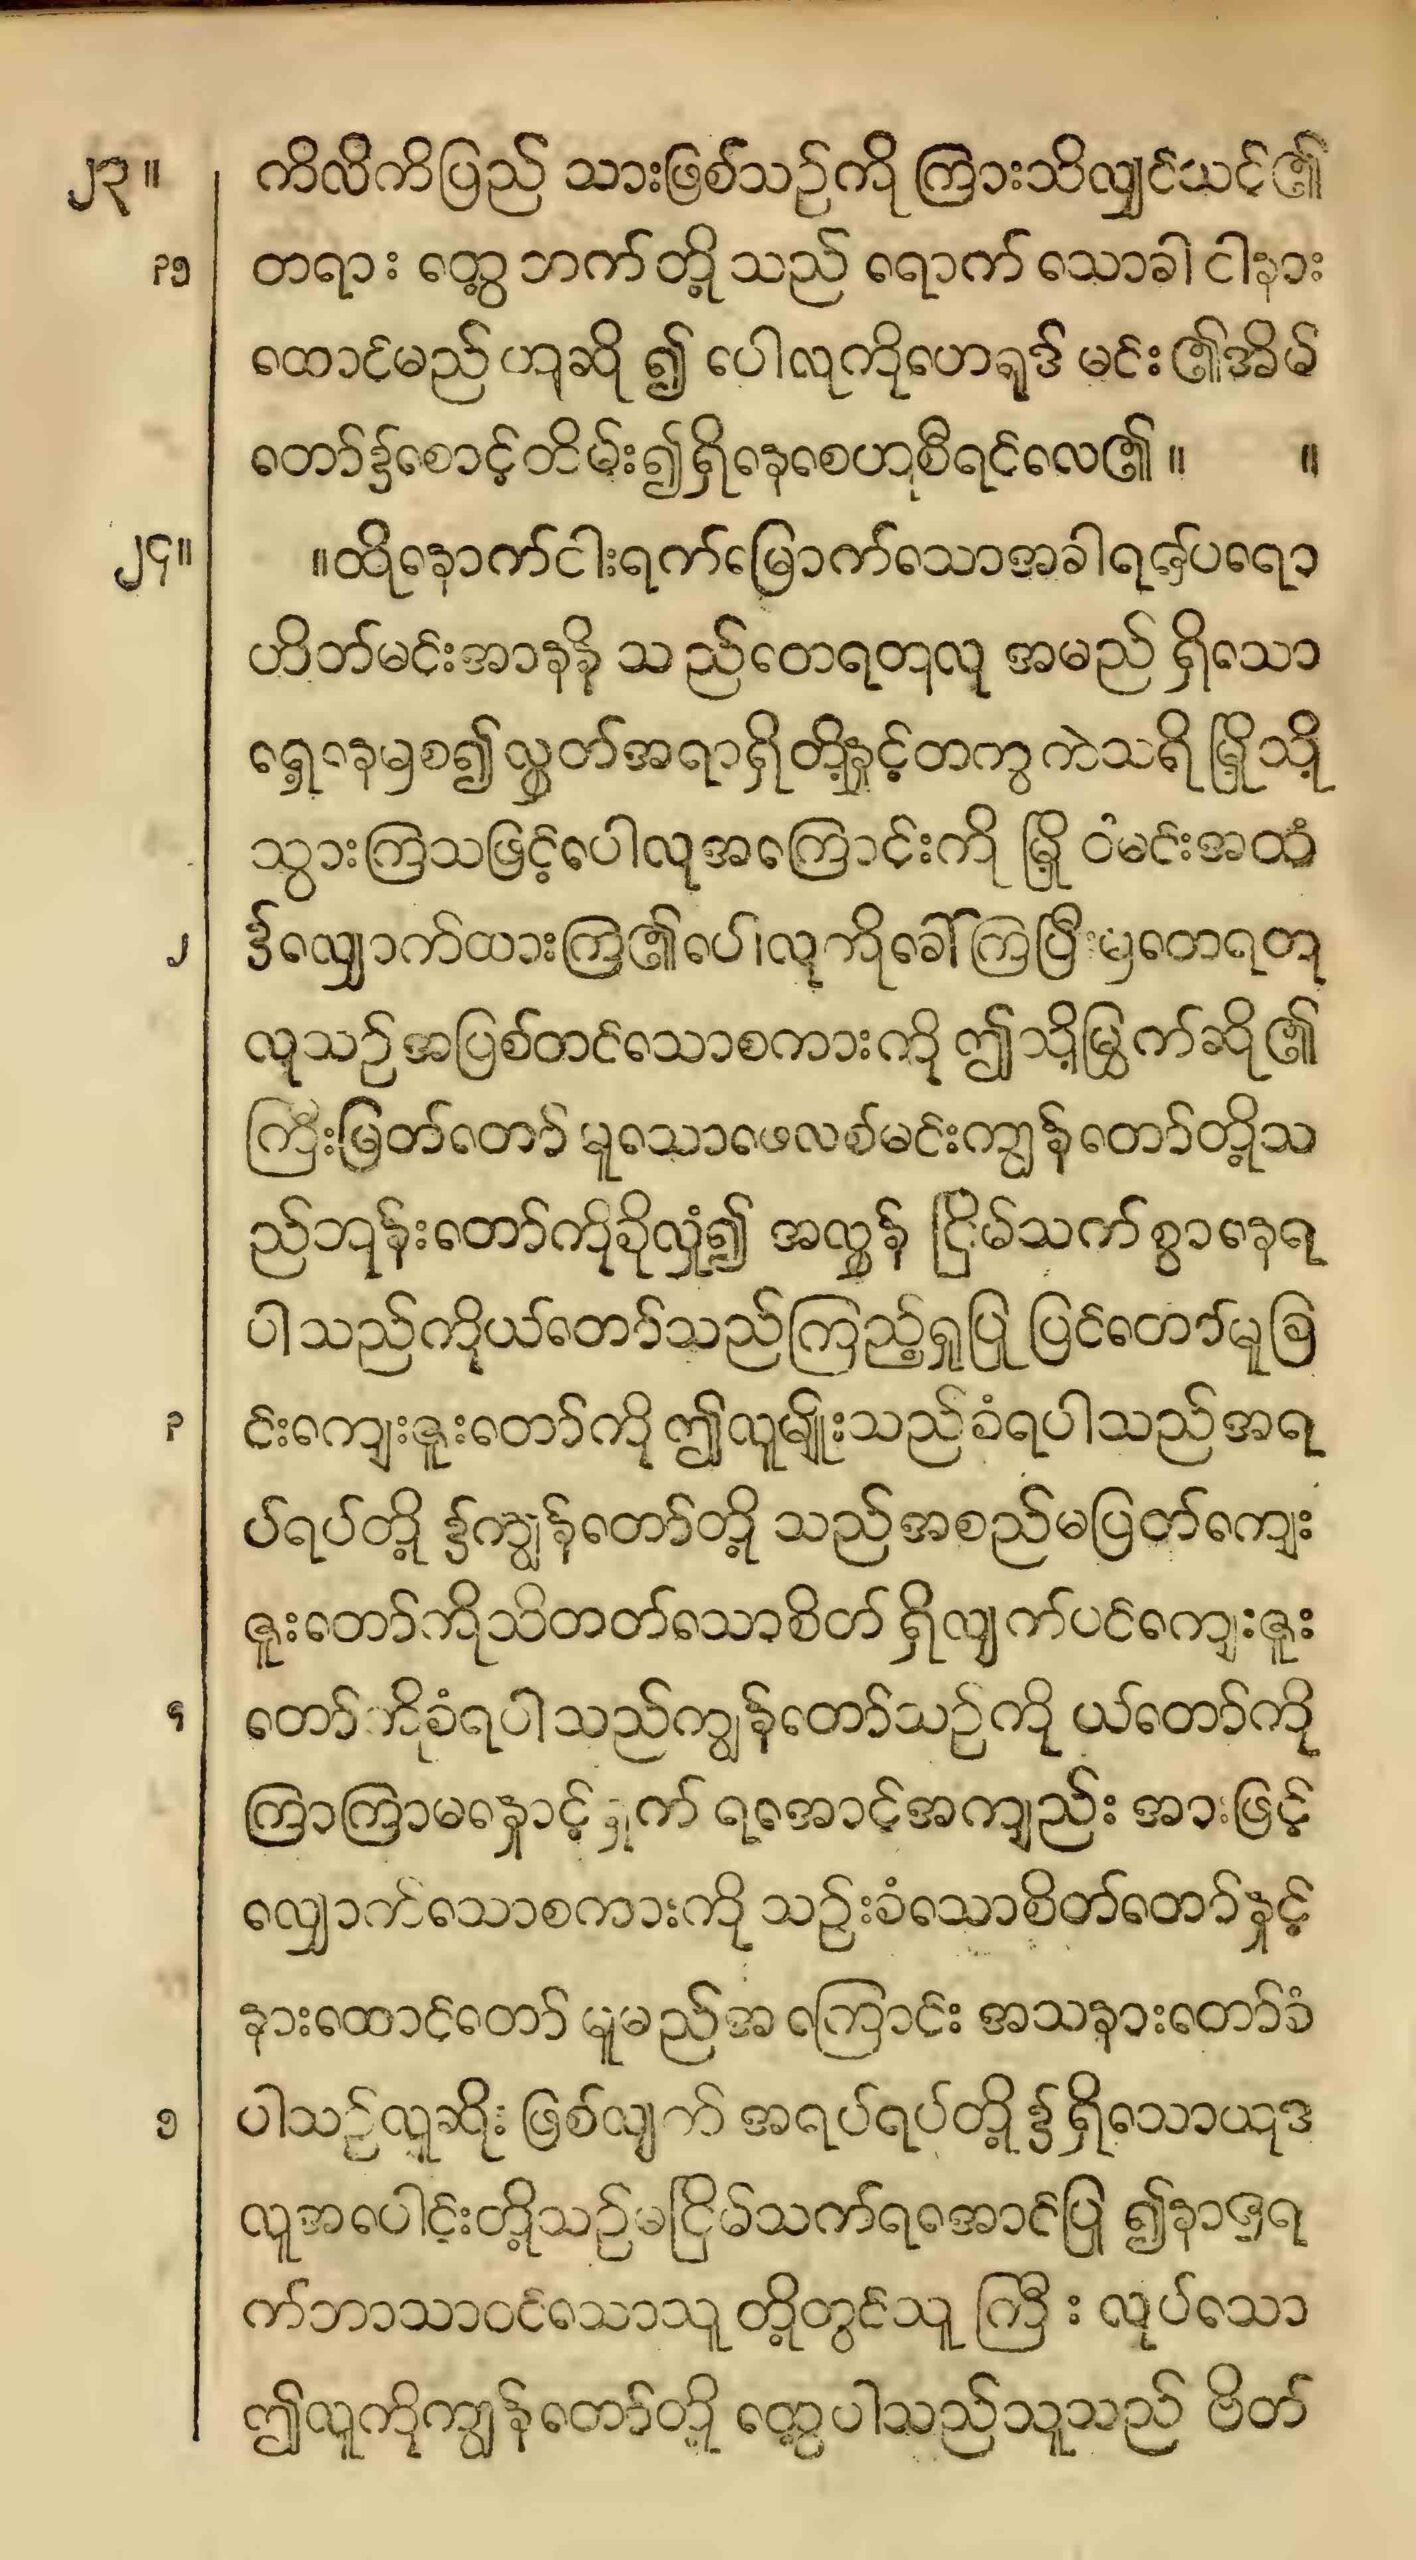 ၂၃။ ကိလိကိပြည် သားဖြစ်သဉ်ကို ကြားသိလျှင်သင်၏
၃၅ တရား တွေ့ ဘက်တို့ သည် ရောက် သောခါ ငါနား
ထောင်မည် ဟုဆို ၍ ပေါလုကိုဟေရုဒ် မင်း ၏အိမ်
တော်၌စောင့်ထိမ်း၍ရှိနေစေဟုစီရင်လေ၏။ ။
၂၄။ ။ထိုနောက်ငါးရက်မြောက်သောအခါရဟ်ပရော
ဟိတ်မင်းအာနနိ သည်တေရတုလု အမည် ရှိသော
ရှေ့နေမှစ၍လွှတ်အရာရှိတို့နှင့်တကွကဲသရိ မြို့သို့
သွားကြသဖြင့်ပေါလုအကြောင်းကို မြို့ ဝံမင်းအထံ
၂ ၌လျှောက်ထားကြ၏ပေါလုကိုခေါ်ကြပြီးမှတေရတု
လုသဉ်အပြစ်တင်သောစကားကို ဤသို့မြွက်ဆို၏
ကြီးမြတ်တော် မူသောဖေလစ်မင်းကျွန်တော်တို့သ
ည်ဘုန်းတော်ကိုခိုလှုံ၍ အလွန် ငြိမ်သက်စွာနေရ
ပါသည်ကိုယ်တော်သည်ကြည့်ရှုပြု ပြင်တော်မူခြ
၃ င်းကျေးဇူးတော်ကို ဤလူမျိုးသည်ခံရပါသည်အရ
ပ်ရပ်တို့ ၌ကျွန်တော်တို့ သည်အစည်မပြတ်ကျေး
ဇူးတော်ကိုသိတတ်သောစိတ် ရှိလျက်ပင်ကျေးဇူး
၄ တော်ကိုခံရပါသည်ကျွန်တော်သဉ်ကို ယ်တော်ကို
ကြာကြာမနှောင့်ရှက် ရအောင့်အကျည်း အားဖြင့်
လျှောက်သောစကားကို သဉ်းခံသောစိတ်တော်နှင့်
နားထောင်တော် မူမည်အ ကြောင်း အသနားတော်ခံ
၅ ပါသဉ်လူဆိုး ဖြစ်လျက် အရပ်ရပ်တို့ ၌ ရှိသောယုဒ
လူအပေါင်းတို့သဉ်မငြိမ်သက်ရအောင်ပြု ၍နာဇရ
က်ဘာသာဝင်သောသူ တို့တွင်သူ ကြီး လုပ်သော
ဤလူကိုကျွန်တော်တို့ တွေ့ပါသည်သူသည် ဗိတ်